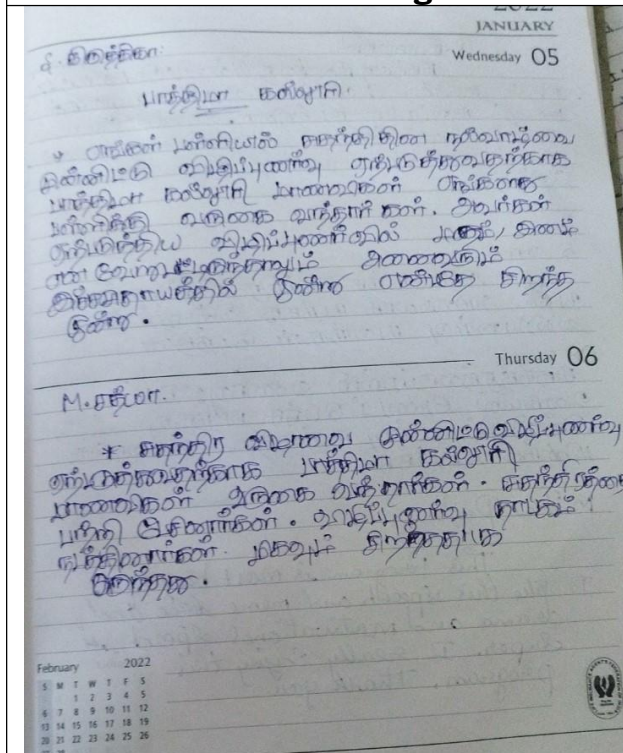 2022
JANUARY
Wednesday 05
பாத்திமா கல்லூரி
எங்கள் பள்ளியில்
முன்னிட்டு விழிப்புணர்வு ஏற்படுத்துவதற்காக
பாத்திமா கல்லூரி மாணவிகள் எங்களது
பள்ளிக்கு வருகை வந்தார்கள். அவர்கள்
ஏற்படுத்திய விழிப்புணர்வில்
அனைவரும்
ஒன்று என்பதே சிறந்த
ஒன்று.
Thursday 06
* சுதந்திர விழாவை முன்னிட்டு விழிப்புணர்வு
ஏற்படுத்துவதற்காக பாத்திமா கல்லூரி
மாணவிகள் வருகை வந்தார்கள். சுதந்திரத்தை
பற்றி பேசினார்கள். விழிப்புணர்வு நாடகம்
நடத்தினார்கள். மிகவும் சிறந்ததாக
இருந்தது.
February 2022
S M T W T F S
1 2 3 4 5
6 7 8 9 10 11 12
13 14 15 16 17 18 19
20 21 22 23 24 25 26